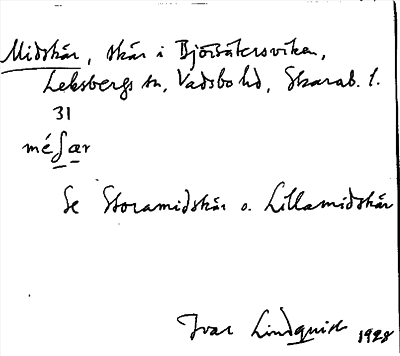 Midskär, skär i Björsätersviken,
Leksbergs sn, Vadsbo hd, Skarab. l.
31
méʃær
Se Storamidskär o. Lillamidskär
Ivar Lindquist 1928